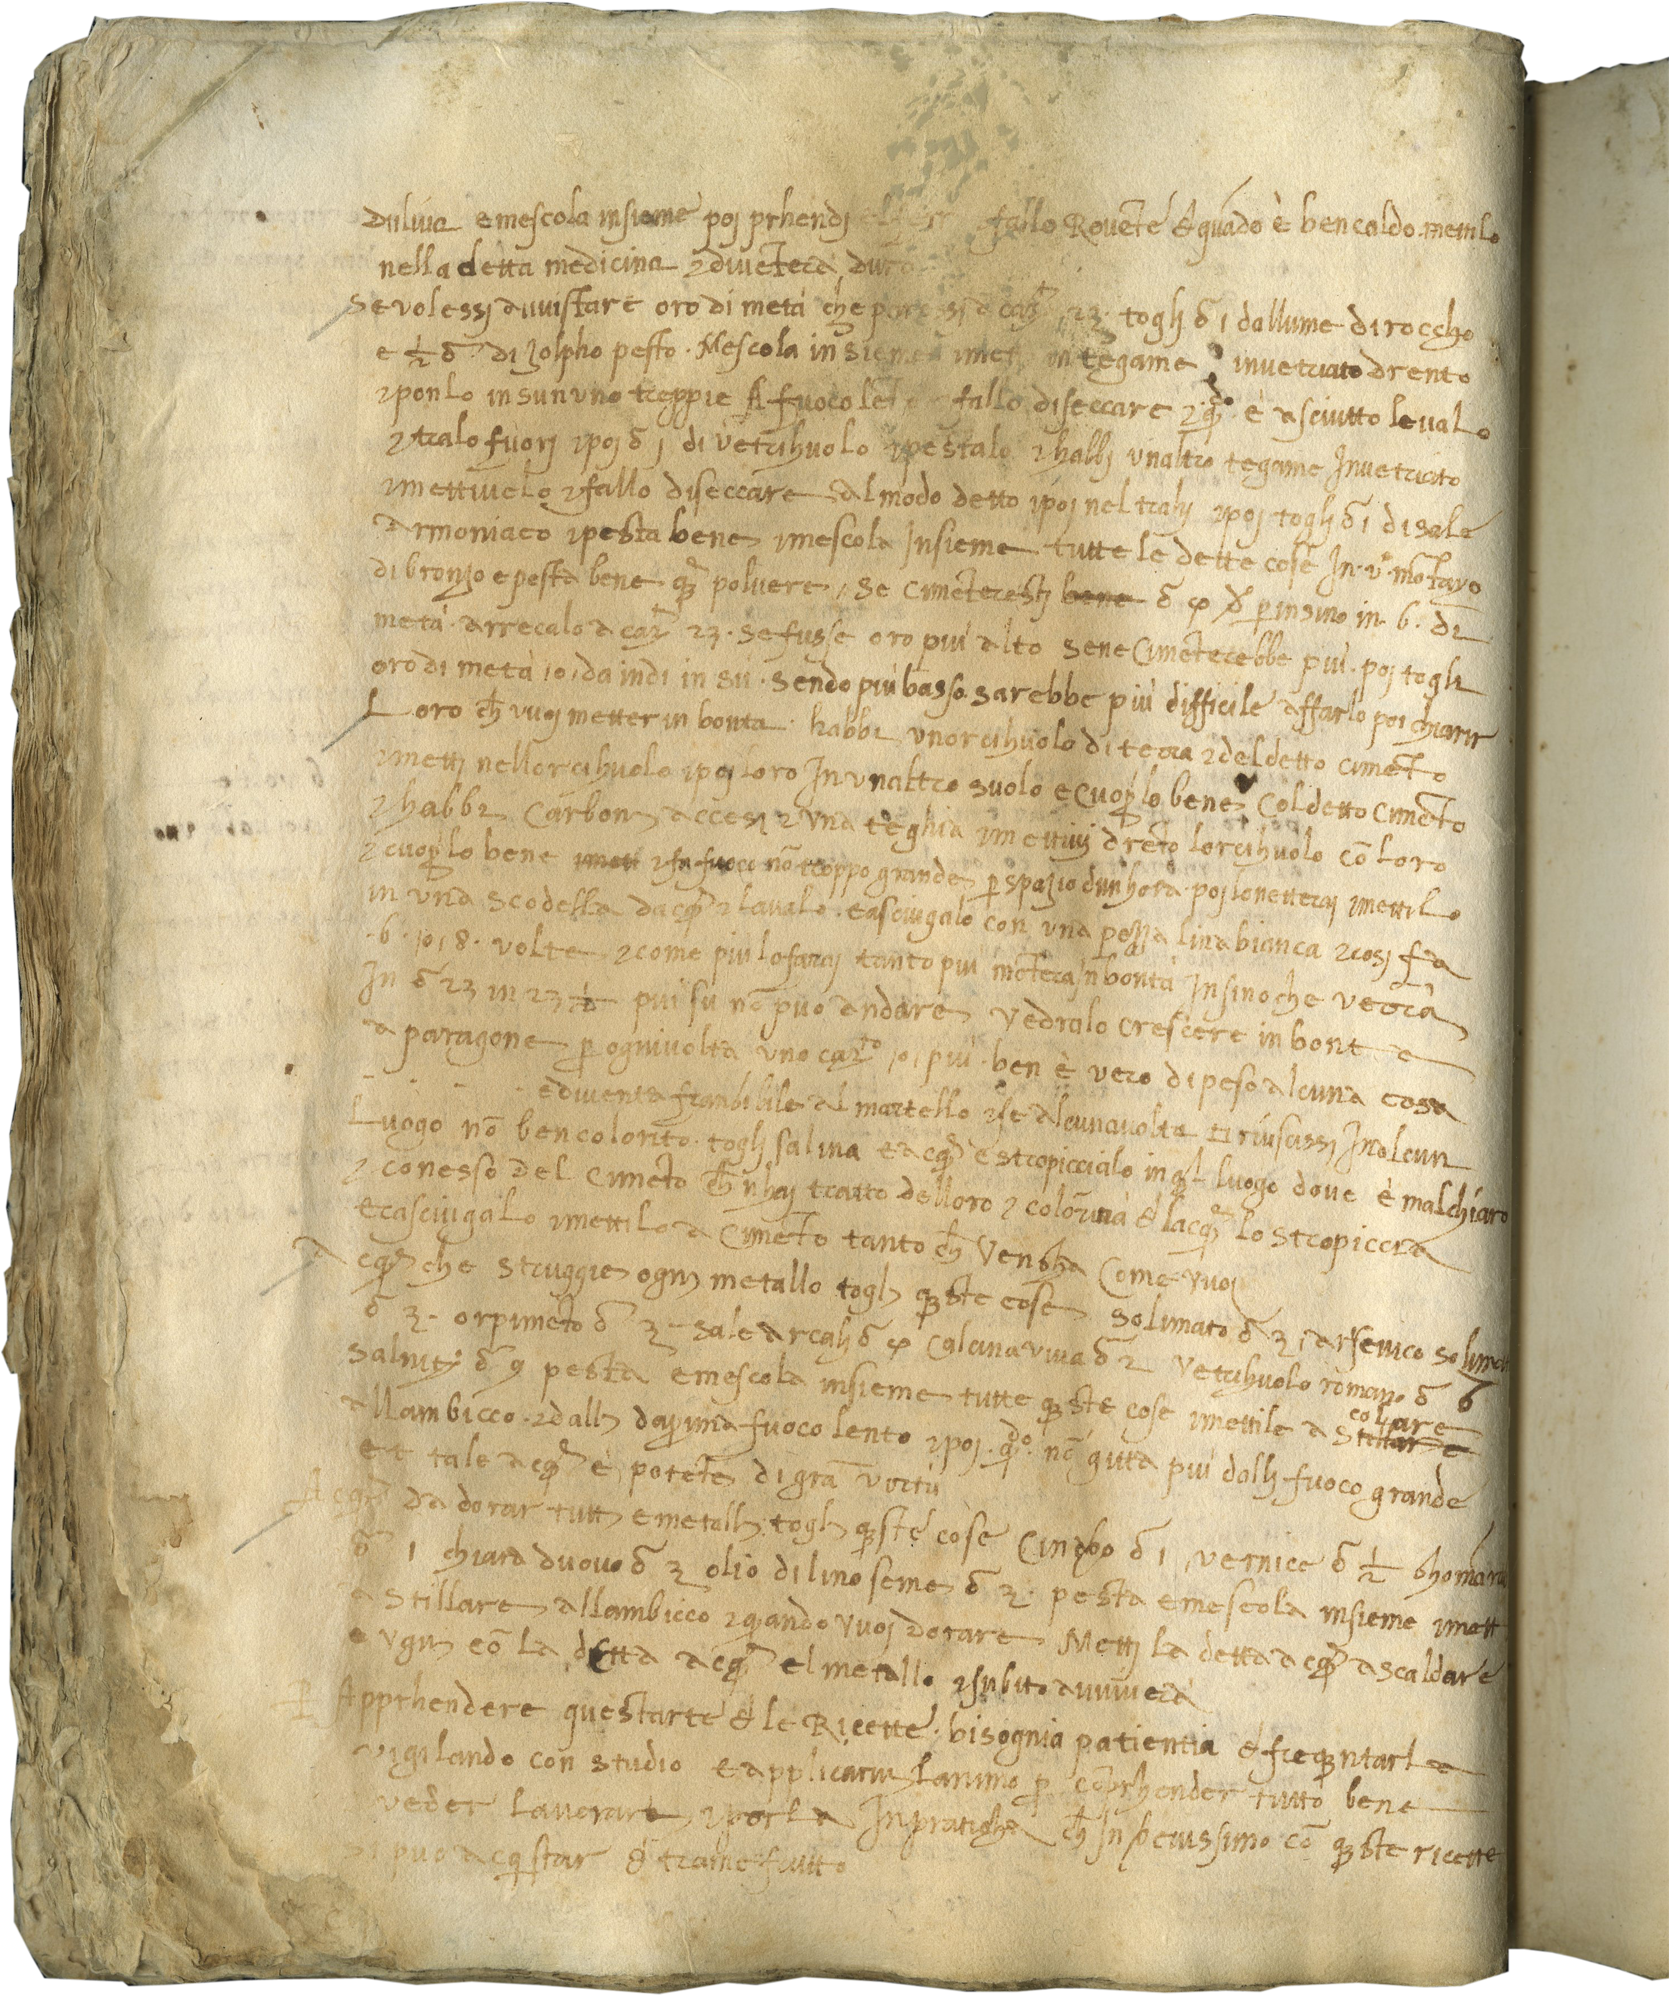 duliua e mescola insieme poj prhendj fallo Rouēte & quādo è ben caldo mettilo
nella detta medicina ⁊ diuēterà duro
Se volessi auuistare oro di metà che paressi a carⁱ 23 toglj ō 1 dallume di roccho
e ½ ō di Zolpho pesto. Mescola insieme ⁊ mettj in tegame inuetriato drento
⁊ ponlo in sun uno treppie A fuoco lēto fallo diseccare ⁊ qdo è asciutto leualo
⁊ tralo fuorj ⁊ poj ō 1 di vetrihuolo ⁊ pestalo ⁊ habbj vnaltro tegame Inuetriato
⁊ mettiuelo ⁊ fallo diseccare Al modo detto ⁊ poj nel trahj ⁊ poj toglj ō 1 di sale
Armoniaco ⁊ pesta bene ⁊ mescola Insieme tutte le dette cose In vº mōtaro
di bronzo e pesta bene q̄ polvere, Se cimēterestj bene ō per insino in 6. di
metà. arrecalo a carⁱ 23. se fusse oro più alto sene Cimēterebbe più. poj toglj
oro di metà, o, da indi in sù. sendo più basso sarebbe più difficile affarlo poi chiarir
Loro ch̄ vuoj metter in bonta habbi vnorcihuolo di terra ⁊ del detto cimēto
⁊ mettj nellorcihuolo ⁊ poj loro In vnaltro suolo e Cuoprilo bene Col detto Cimēto
⁊ habbi Carbonj accesi ⁊ vna teghia ⁊ mettiuj drēto lorcihuolo cō loro
⁊ cuoprilo bene mett ⁊ fa fuoco nō troppo grande p spazio dunhora poj lo netteraj ⁊ mettilo
in vna scodella dacqa ⁊ laualo. e asciugalo con vna pezza lina bianca ⁊ cosj fa
.6. o, 8. volte ⁊ come più lo faraj tanto più mōterà 'n bontà Insino che verrà
In ō 23 in 23 ½ più su nō può andare vedralo crescere in bontà
a paragone p ogniuolta vno carto, o, più. ben è vero di peso alcuna cosa
e diuenta franbilile al martello ⁊ se alcunauolta ti riuscissi In alcun
Luogo nō ben colorito toglj salina e acqa e stropiccialo in ql luogo doue è malchiaro
⁊ con esso del Cimēto ch̄ n'haj tratto delloro ⁊ colorirà & lacqa lo stropiccerà
e rasciugalo ⁊ mettilo a Cimēto tanto ch̄ Vengha Come vuoj
Acqa che struggie ognj metallo toglj queste cose solimato ō 3, arsenico solimat
ō 3. orpimēto ō 3 sale arcalj ō Calcina viua ō 2 Vetrihuolo romano ō 6
Salnitj ō 9 pesta e mescola insieme tutte queste cose ⁊ mettile a colare Stillare
allambicco. ⁊ dallj daprima fuoco lento ⁊ poj qdo nō gitta più dallj fuoco grande
et tale acqa è potēte di grā vertù
Acqa da dorar tuttj e metallj toglj queste cose Cinabro ō 1 vernice ō ½ ghomārab
ō 1 chiara duovo ō 3 olio di lino seme ō 3. pesta e mescola insieme ⁊ mett
a stillare allambicco ⁊ quando vuoj dorare Mettj la detta acqa a scaldare
e vgnj cō la detta acqa el metallo ⁊ subito auuiuera
P Apprhendere questarte & le Ricette. bisognia patientia & frequentarla
vigilando con studio e applicaruj lanimo p cōprhender tutto bene
veder lauorare ⁊ porla In praticha ch̄ In breuissimo cō queste ricette
si può acquistar & trarne frutto